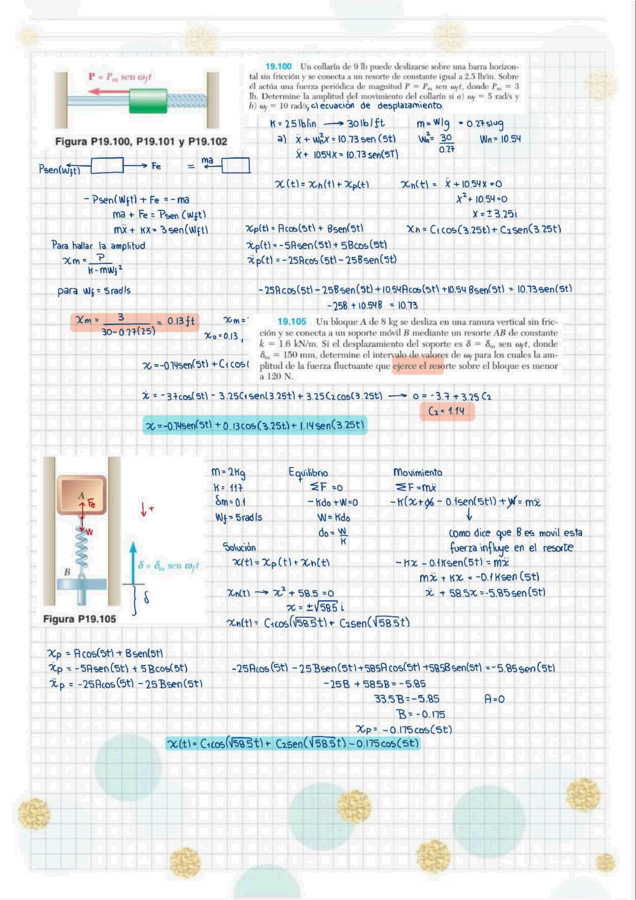 P = Pm sen ωft
Figura P19.100, P19.101 y P19.102
19.100 Un collarín de 9 lb puede deslizarse sobre una barra horizon-
tal sin fricción y se conecta a un resorte de constante igual a 2.5 lb/in. Sobre
él actúa una fuerza periódica de magnitud P = Pm sen ωft, donde Pm = 3
lb. Determine la amplitud del movimiento del collarín si a) ωf = 5 rad/s y
b) ωf = 10 rad/s, c) ecuación de desplazamiento.
K = 2.5 lb/in → 30 lb/ft m = W/g = 0.27 slug
a) ẍ + ωn²x = 10.73 sen(5t) Wn² = 30/0.27 Wn = 10.54
ẍ + 10.54x = 10.73 sen(5T)
Psen(Wft) Fe = ma
x(t) = xh(t) + xp(t) xh(t) = ẍ + 10.54x = 0
x² + 10.54 = 0
x = ± 3.25i
- Psen(Wft) + Fe = -ma
ma + Fe = Psen(Wft)
mẍ + KX = 3 sen(Wft)
xp(t) = Acos(5t) + Bsen(5t) Xh = C1cos(3.25t) + C2sen(3.25t)
ẋp(t) = -5Asen(5t) + 5Bcos(5t)
ẍp(t) = -25Acos(5t) - 25Bsen(5t)
Para hallar la amplitud
xm = P/(K - mWf²)
para Wf = 5 rad/s
-25Acos(5t) - 25Bsen(5t) + 10.54Acos(5t) + 10.54Bsen(5t) = 10.73 sen(5t)
-25B + 10.54B = 10.73
Xm = 3/(30 - 0.27(25)) = 0.13 ft
xm =
x0 = 0.13,
19.105 Un bloque A de 8 kg se desliza en una ranura vertical sin fric-
ción y se conecta a un soporte móvil B mediante un resorte AB de constante
k = 1.6 kN/m. Si el desplazamiento del soporte es δ = δm sen ωft, donde
δm = 150 mm, determine el intervalo de valores de ωf para los cuales la am-
plitud de la fuerza fluctuante que ejerce el resorte sobre el bloque es menor
a 120 N.
x = -0.74sen(5t) + C1cos(
ẋ = -3.7cos(5t) - 3.25C1sen(3.25t) + 3.25C2cos(3.25t) → 0 = -3.7 + 3.25 C2
C2 = 1.14
x = -0.74sen(5t) + 0.13cos(3.25t) + 1.14sen(3.25t)
A
Fe
W
↓+
B
δ = δm sen ωft
δ
Figura P19.105
m = 2Kg
K = 117
δm = 0.1
Wf = 5 rad/s
Equilibrio
ΣF = 0
- Kdo + W = 0
W = Kdo
do = W/K
Movimiento
ΣF = mẍ
-K(x + do - 0.1sen(5t)) + W = mẍ
como dice que B es movil esta
fuerza influye en el resorte
-Kx - 0.1Ksen(5t) = mẍ
mẍ + Kx = -0.1Ksen(5t)
ẍ + 58.5x = -5.85sen(5t)
Solución
x(t) = xp(t) + xh(t)
xh(t) → x² + 58.5 = 0
x = ±√58.5 i
xh(t) = C1cos(√58.5t) + C2sen(√58.5t)
xp = Acos(5t) + Bsen(5t)
ẋp = -5Asen(5t) + 5Bcos(5t)
ẍp = -25Acos(5t) - 25Bsen(5t)
-25Acos(5t) - 25Bsen(5t) + 58.5Acos(5t) + 58.5Bsen(5t) = -5.85sen(5t)
-25B + 58.5B = -5.85
33.5B = -5.85 A = 0
B = -0.175
xp = -0.175cos(5t)
x(t) = C1cos(√58.5t) + C2sen(√58.5t) - 0.175cos(5t)